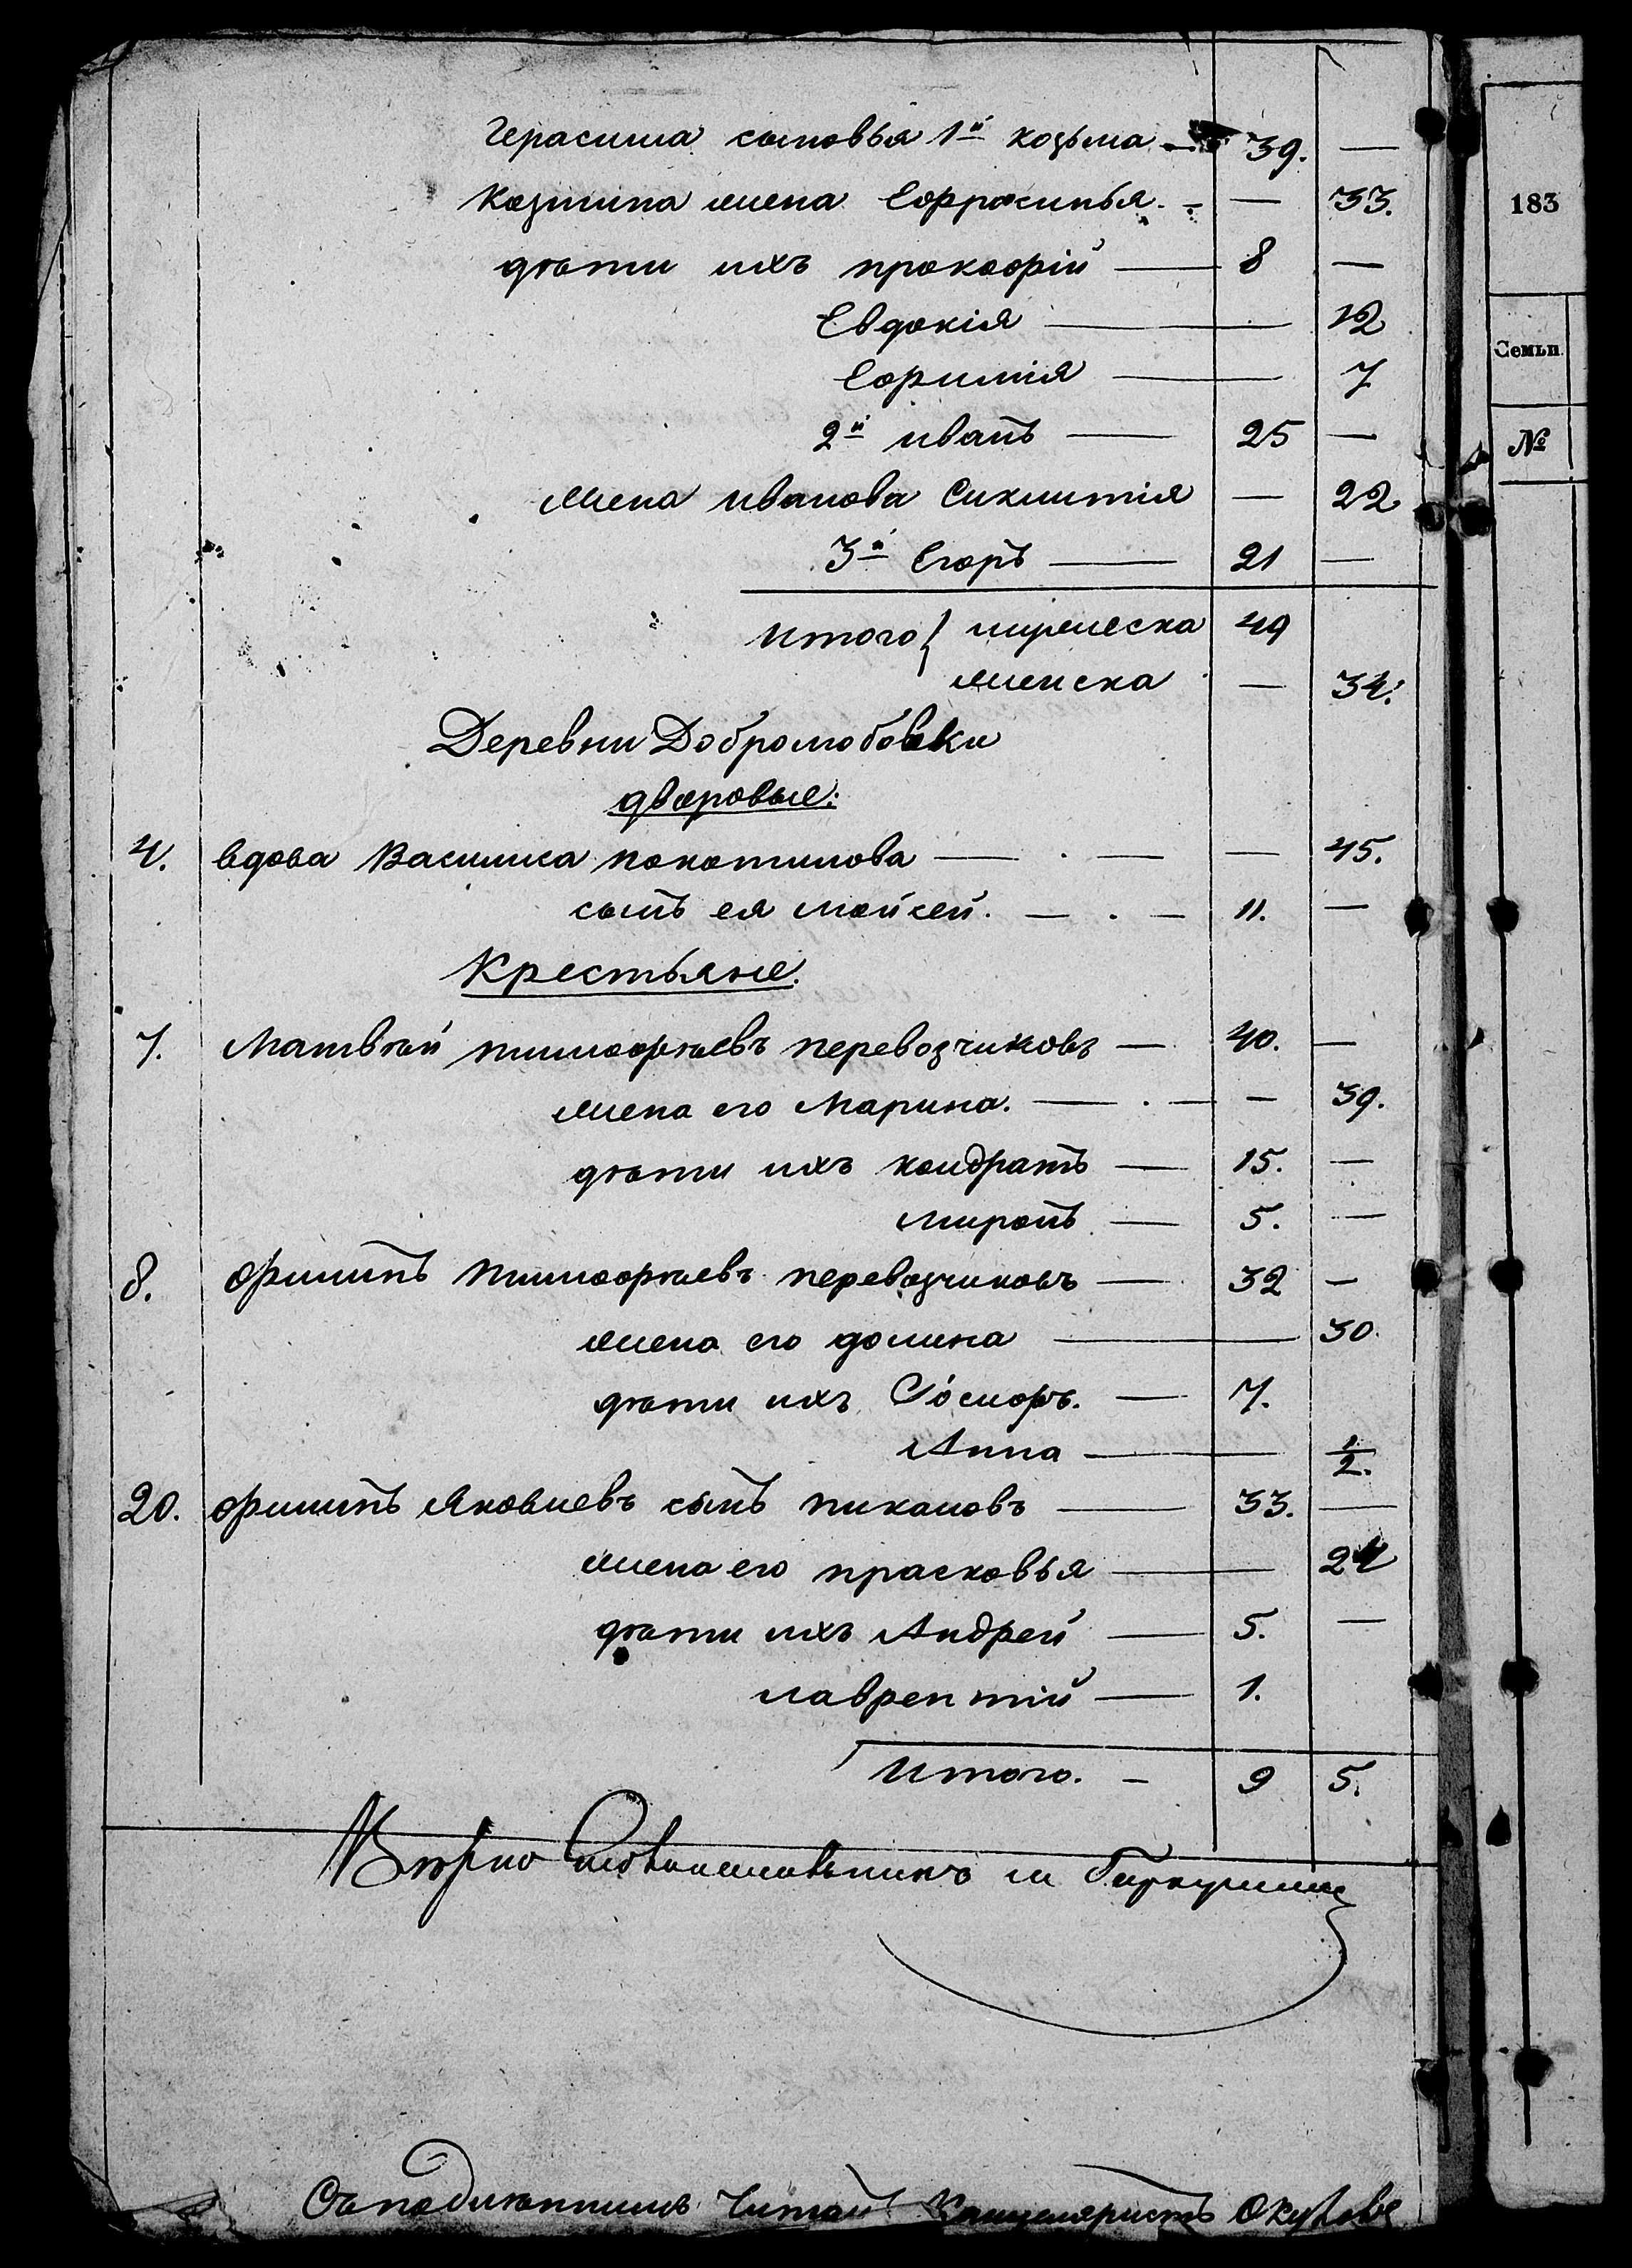 Герасима сыновья 1й козьма — 39. —
Козмина жена Ефросинья. — — 33.
дѣти ихъ прокофій — 8 —
Евдокія — 12
Ефимія — 7
2й иванъ — 25 —
жена иванова Сиклитія — 22
3й Егоръ — 21 —
итого { мужеска 49
женска — 34.
Деревни Добролюбовки
дворовые:
4. вдова Василиса покотилова — . — — 45.
сынъ ея мойсей. — . — 11. —
Крестьяне.
7. Матвѣй тимофѣевъ перевозчиковъ — 40. —
жена его Марина. — . — — 39.
дѣти ихъ кондратъ — 15. —
миронъ — 5. —
8. филипъ тимофѣевъ перевозчиковъ — 32 —
жена его домна — 30.
дѣти ихъ Іосифъ. — 7.
Анна — 1/2.
20. филипъ Яковлевъ сынъ пикаловъ — 33. —
жена его прасковья — 24
дѣти ихъ Андрей — 5. —
лаврентій — 1.
Итого. — 9 5.
Вѣрно
Съ подлиннымъ Читалъ Канцеляристъ Окуловъ
183
Семьи
№